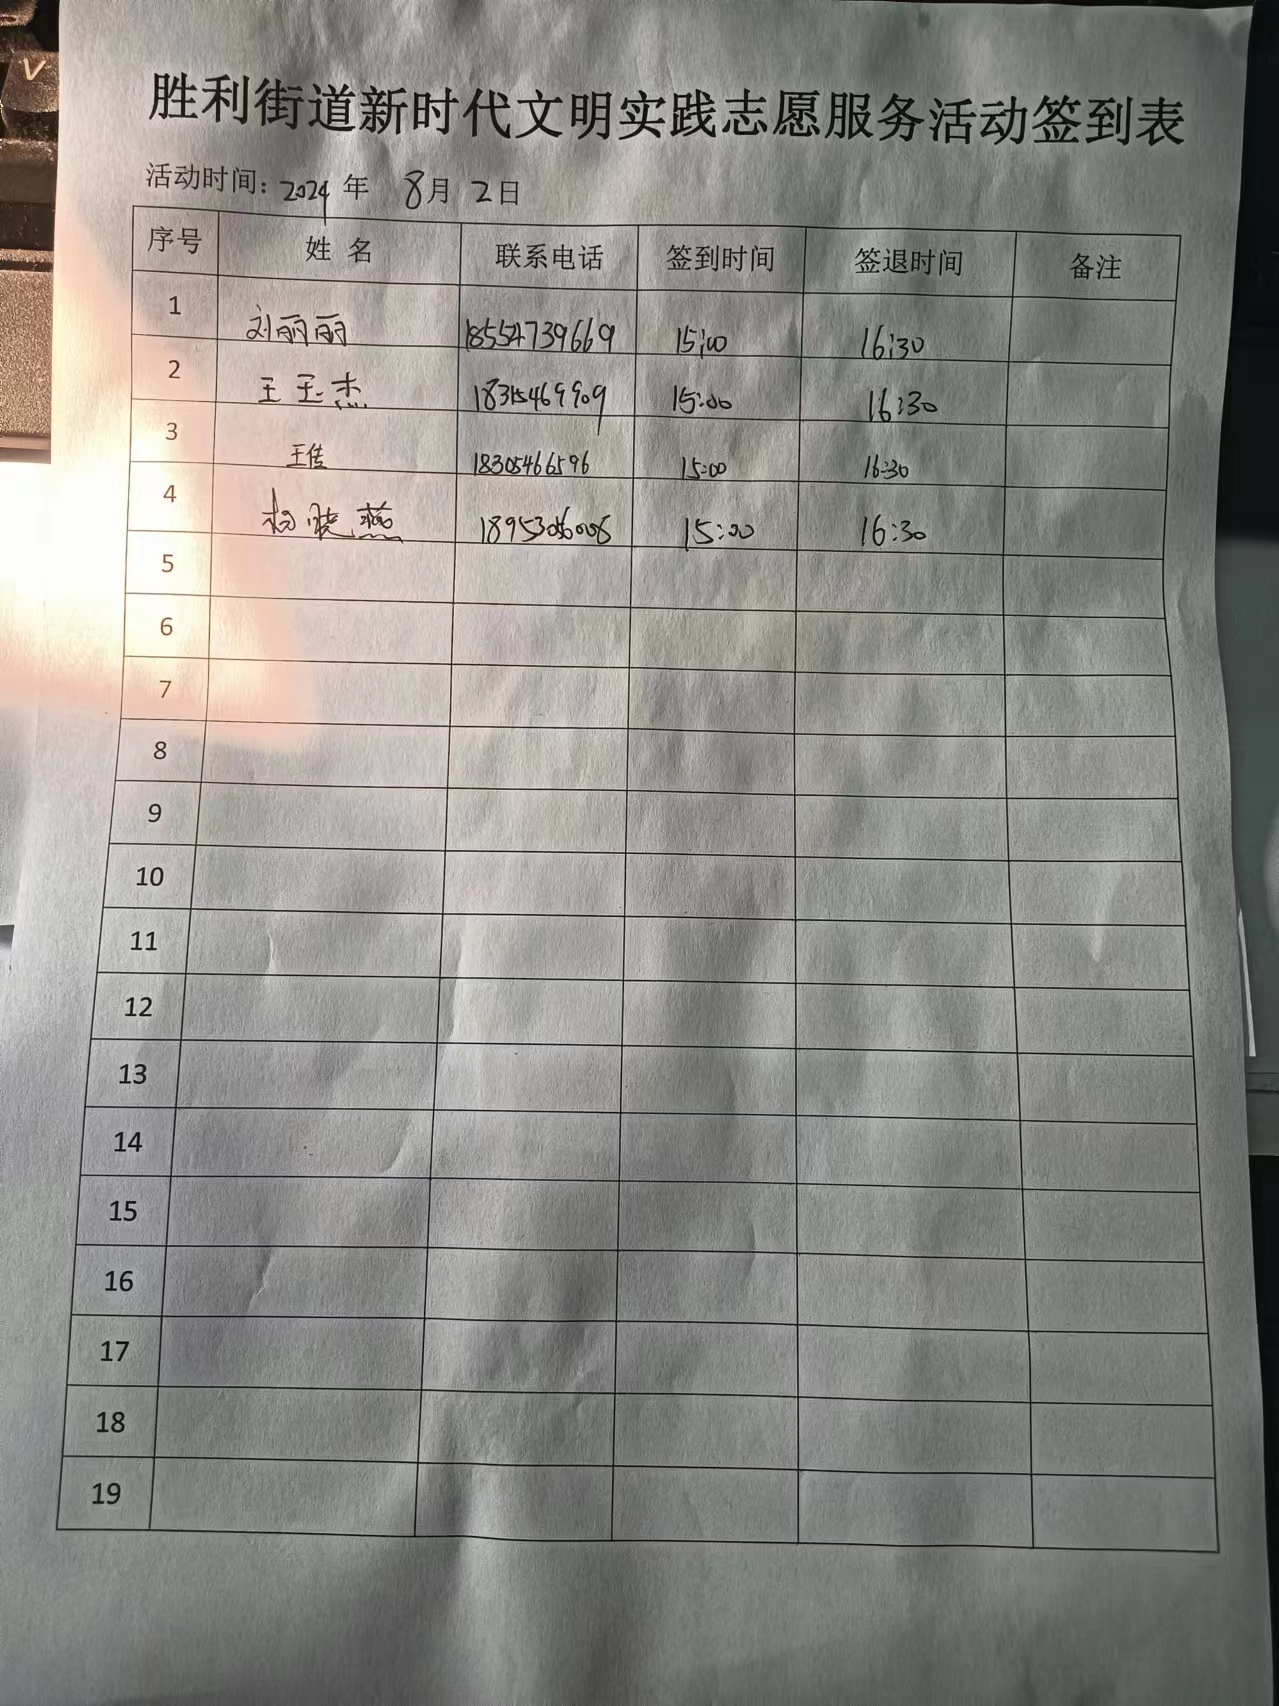 胜利街道新时代文明实践志愿服务活动签到表
活动时间：2024 年 8月 2日
序号 姓 名 联系电话 签到时间 签退时间 备注
1 刘丽丽 18554739669 15:00 16:30
2 王玉杰 15:00 16:30
3 王传 18305466596 15:00 16:30
4 杨晓燕 15:00 16:30
5
6
7
8
9
10
11
12
13
14
15
16
17
18
19
V